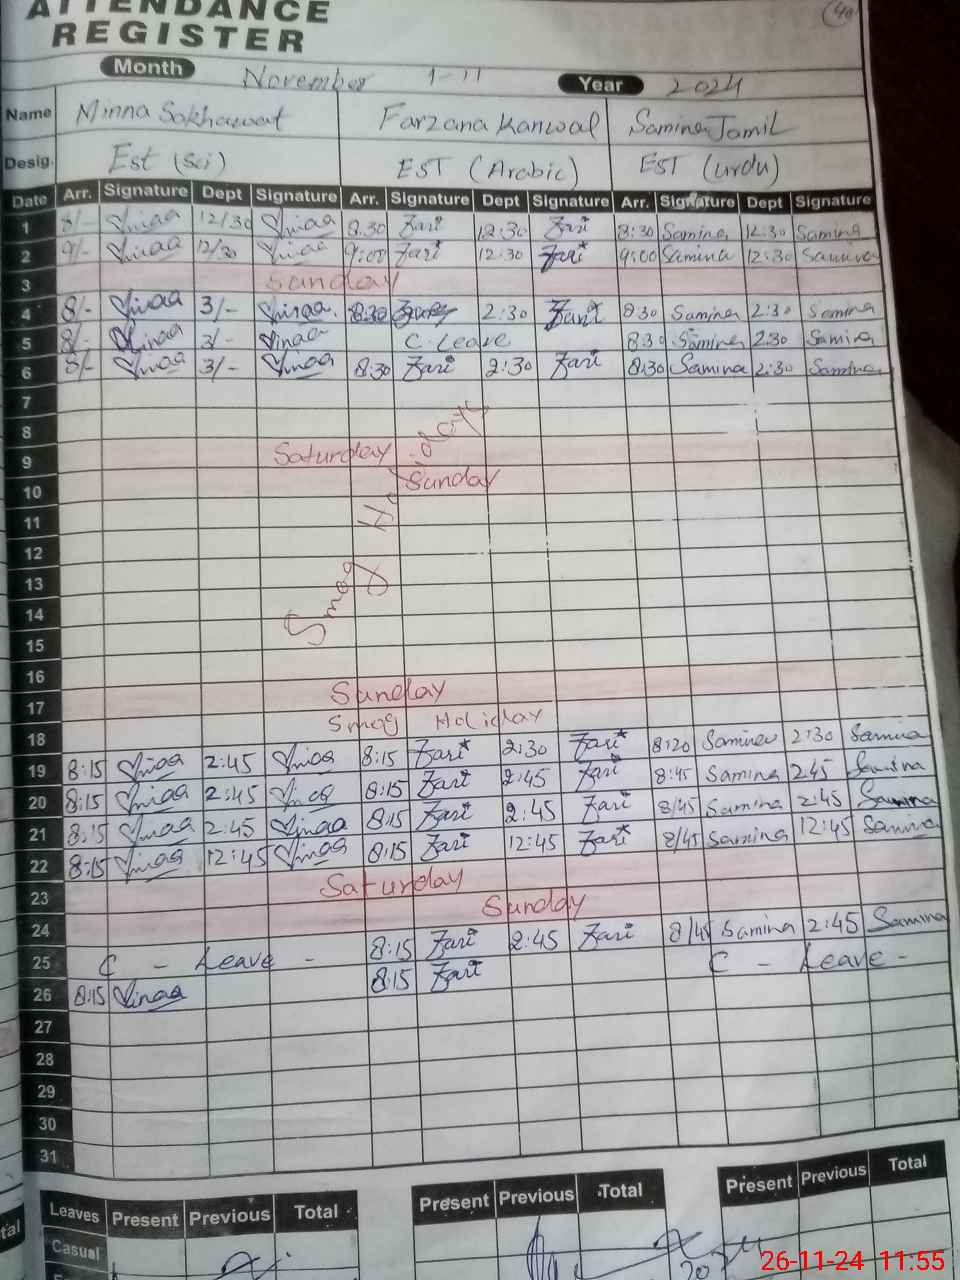 ATTENDANCE
REGISTER
40
Month November 1-11 Year 2024
Name Minna Sakhawat Farzana Kanwal Samina Jamil
Desig. Est (Sci) EST (Arabic) EST (Urdu)
Date Arr. Signature Dept Signature Arr. Signature Dept Signature Arr. Signature Dept Signature
1 8/- 12/30 8.30 12:30 8:30 Samina 12:30 Samina
2 9/- 12/30 9:00 12.30 9:00 Samina 12:30 Samina
3 Sunday
4 8/- 3/- 8.30 2:30 8:30 Samina 2:30 Samina
5 8/- 3/- C. Leave 8:30 Samina 2:30 Samina
6 8/- 3/- 8:30 2:30 8:30 Samina 2:30 Samina
7
8
9 Saturday
10 Sunday
11
12
13
14
15
Smog Holiday
16
17 Sunday
18 Smog Holiday
19 8:15 2:45 8:15 2:30 8:20 Samina 2:30 Samina
20 8:15 2:45 8:15 2:45 8:45 Samina 2:45 Samina
21 8:15 2:45 8:15 2:45 8/45 Samina 2:45 Samina
22 8:15 12:45 8:15 12:45 8/45 Samina 12:45 Samina
23 Saturday
24 Sunday
25 C - Leave - 8:15 2:45 8/45 Samina 2:45 Samina
26 8:15 8:15 C - Leave -
27
28
29
30
31
Leaves Present Previous Total Present Previous Total Present Previous Total
Casual
tal
26-11-24 11:55